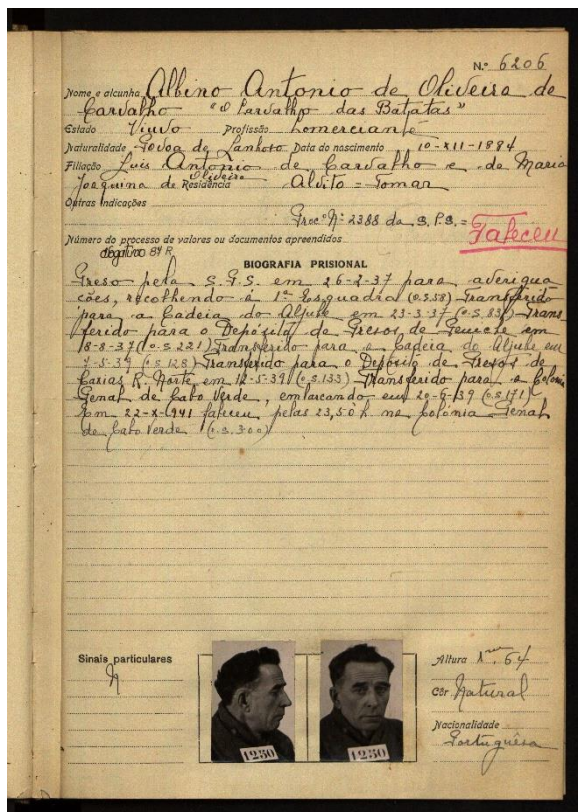 N.º 6206
Nome e alcunha Albino Antonio de Oliveira de
Carvalho "O Carvalho das Batatas"
Estado Viuvo Profissão Comerciante
Naturalidade Povoa de Lanhoso Data do nascimento 10-XII-1884
Filiação Luis Antonio de Carvalho e de Maria
Joaquina de Oliveira Residência Alvito = Tomar
Outras indicações
Proc.º N.º 2388 da S.P.S. =
Faleceu
Número do processo de valores ou documentos apreendidos
BIOGRAFIA PRISIONAL
Preso pela S.P.S. em 26-2-37 para averigua
ções, recolhendo á 1ª Esquadra (O.S.58) Transferido
para a Cadeia do Aljube em 23-3-37 (O.S.83) Trans
ferido para o Depósito de Presos de Peniche em
18-8-37 (O.S.221) Transferido para a Cadeia do Aljube em
7-5-39 (O.S.128) Transferido para o Depósito de Presos de
Caxias R. Norte em 12-5-39 (O.S.133) Transferido para a Colonia
Penal de Cabo Verde, embarcando em 20-6-39 (O.S.171)
Em 22-X-1941 faleceu pelas 23,50 h na Colónia Penal
de Cabo Verde (O.S.300)
Sinais particulares
1250
1250
Altura 1m,64
Côr Natural
Nacionalidade
Portuguêsa